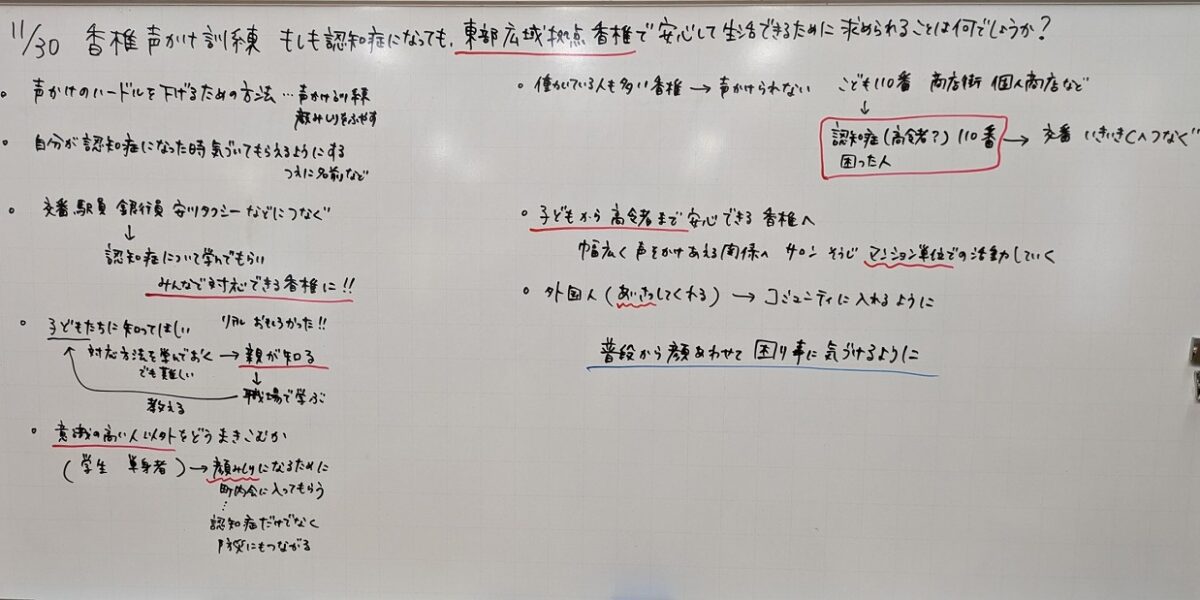 11/30 香椎声かけ訓練 もしも認知症になっても、東部広域拠点香椎で安心して生活できるために求められることは何でしょうか？
・声かけのハードルを下げるための方法 … 声かける訓練
顔みしりをふやす
・自分が認知症になった時気づいてもらえるようにする
つえに名前など
・交番 駅員 銀行員 安川タクシーなどにつなぐ
↓
認知症について学んでもらい
みんなで対応できる香椎に!!
・子どもたちに知ってほしい リアル おもしろかった!!
対応方法を学んでおく → 親が知る
でも難しい
↓
職場で学ぶ
教える
・意識の高い人以外をどうまきこむか
(学生 単身者) → 顔みしりになるために
町内会に入ってもらう
⋮
認知症だけでなく
防災にもつながる
・働いている人も多い香椎 → 声かけられない こども110番 商店街 個人商店など
↓
認知症(高令者?)110番 → 交番 いきいきCへつなぐ
困った人
・子どもから高令者まで安心できる香椎へ
幅広く声をかけあえる関係へ サロン そうじ マンション単位での活動していく
・外国人(あいさつしてくれる) → コミュニティに入れるように
普段から顔あわせて困り事に気づけるように